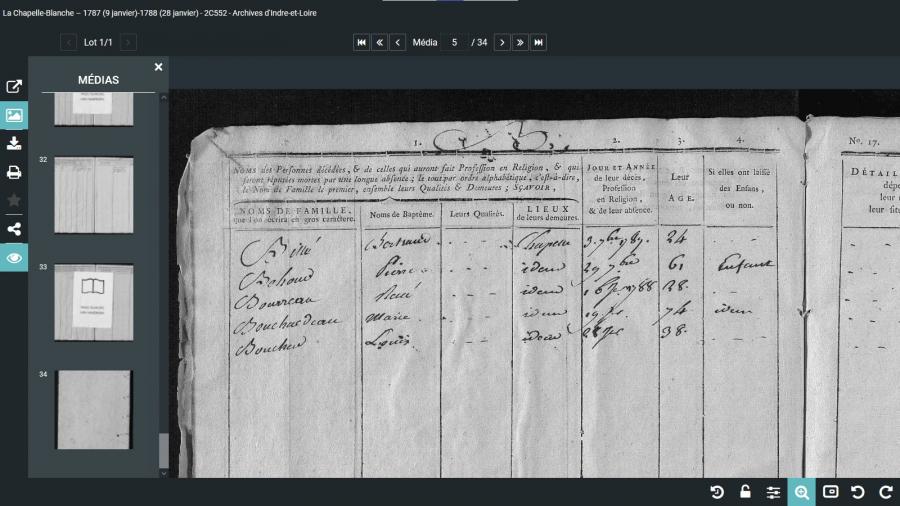 La Chapelle-Blanche – 1787 (9 janvier)-1788 (28 janvier) - 2C552 - Archives d'Indre-et-Loire
Lot 1/1
Média 5 / 34
MÉDIAS
32
33
34
1.
2.
3.
4.
Nº. 17.
NOMS des Personnes décédées, & de celles qui auront fait Profession en Religion, & qui
seront réputées mortes par une longue absence ; le tout par ordre alphabétique, c'est-à-dire,
le Nom de Famille le premier, ensemble leurs Qualités & Demeures ; SÇAVOIR,
NOMS DE FAMILLE,
que l'on écrira en gros caractère.
Noms de Baptême.
Leurs Qualités.
LIEUX
de leurs demeures.
JOUR ET ANNÉE
de leur décès,
Profession
en Religion,
& de leur absence.
Leur
AGE.
Si elles ont laissé
des Enfans,
ou non.
DÉTAIL
dépe
leur
leur situ
Bertrand Chapelle 24
Pierre idem 29 7bre 61 Enfant
Bourreau René idem 28
Bouchardeau Marie idem 74 idem
Louis idem 38